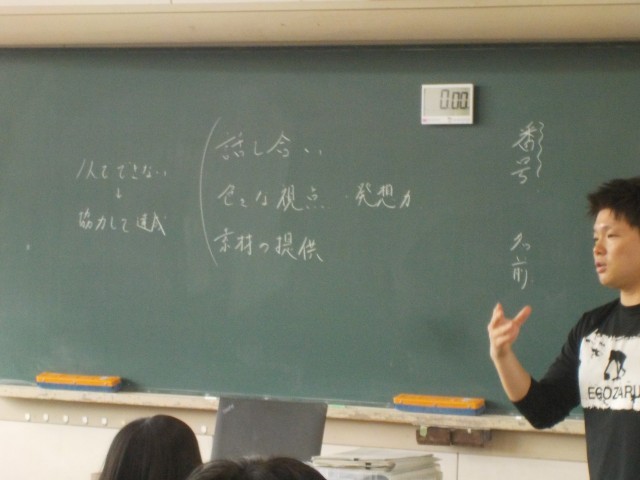 番号 名前
話し合い
色々な視点・発想力
素材の提供
1人でできない
↓
協力して達成
0:00
EGOZARU